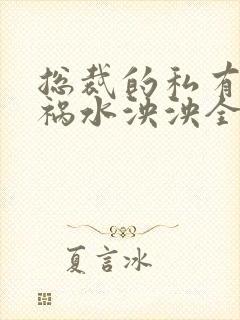 总裁的私有
祸水泱泱全
夏言冰